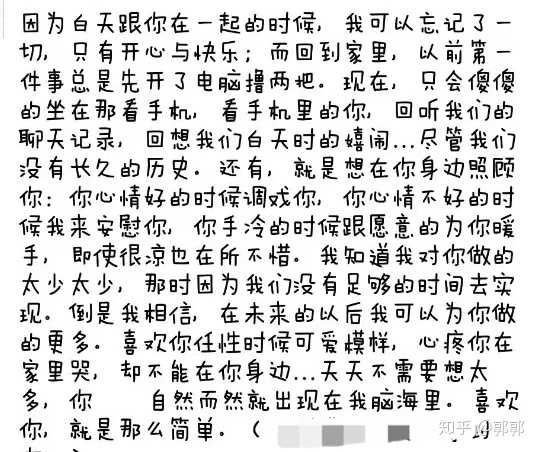 因为白天跟你在一起的时候，我可以忘记了一
切，只有开心与快乐；而回到家里，以前第一
件事总是先开了电脑撸两把。现在，只会傻傻
的坐在那看手机，看手机里的你，回听我们的
聊天记录，回想我们白天时的嬉闹...尽管我们
没有长久的历史。还有，就是想在你身边照顾
你：你心情好的时候调戏你，你心情不好的时
候我来安慰你，你手冷的时候跟愿意的为你暖
手，即使很凉也在所不惜。我知道我对你做的
太少太少，那时因为我们没有足够的时间去实
现。倒是我相信，在未来的以后我可以为你做
的更多。喜欢你任性时候可爱模样，心疼你在
家里哭，却不能在你身边...天天不需要想太
多，你 自然而然就出现在我脑海里。喜欢
你，就是那么简单。（
知乎 @郭郭